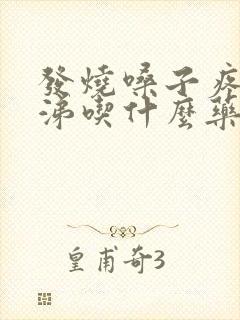 發燒嗓子疼
涕喫什麼藥
皇甫奇3